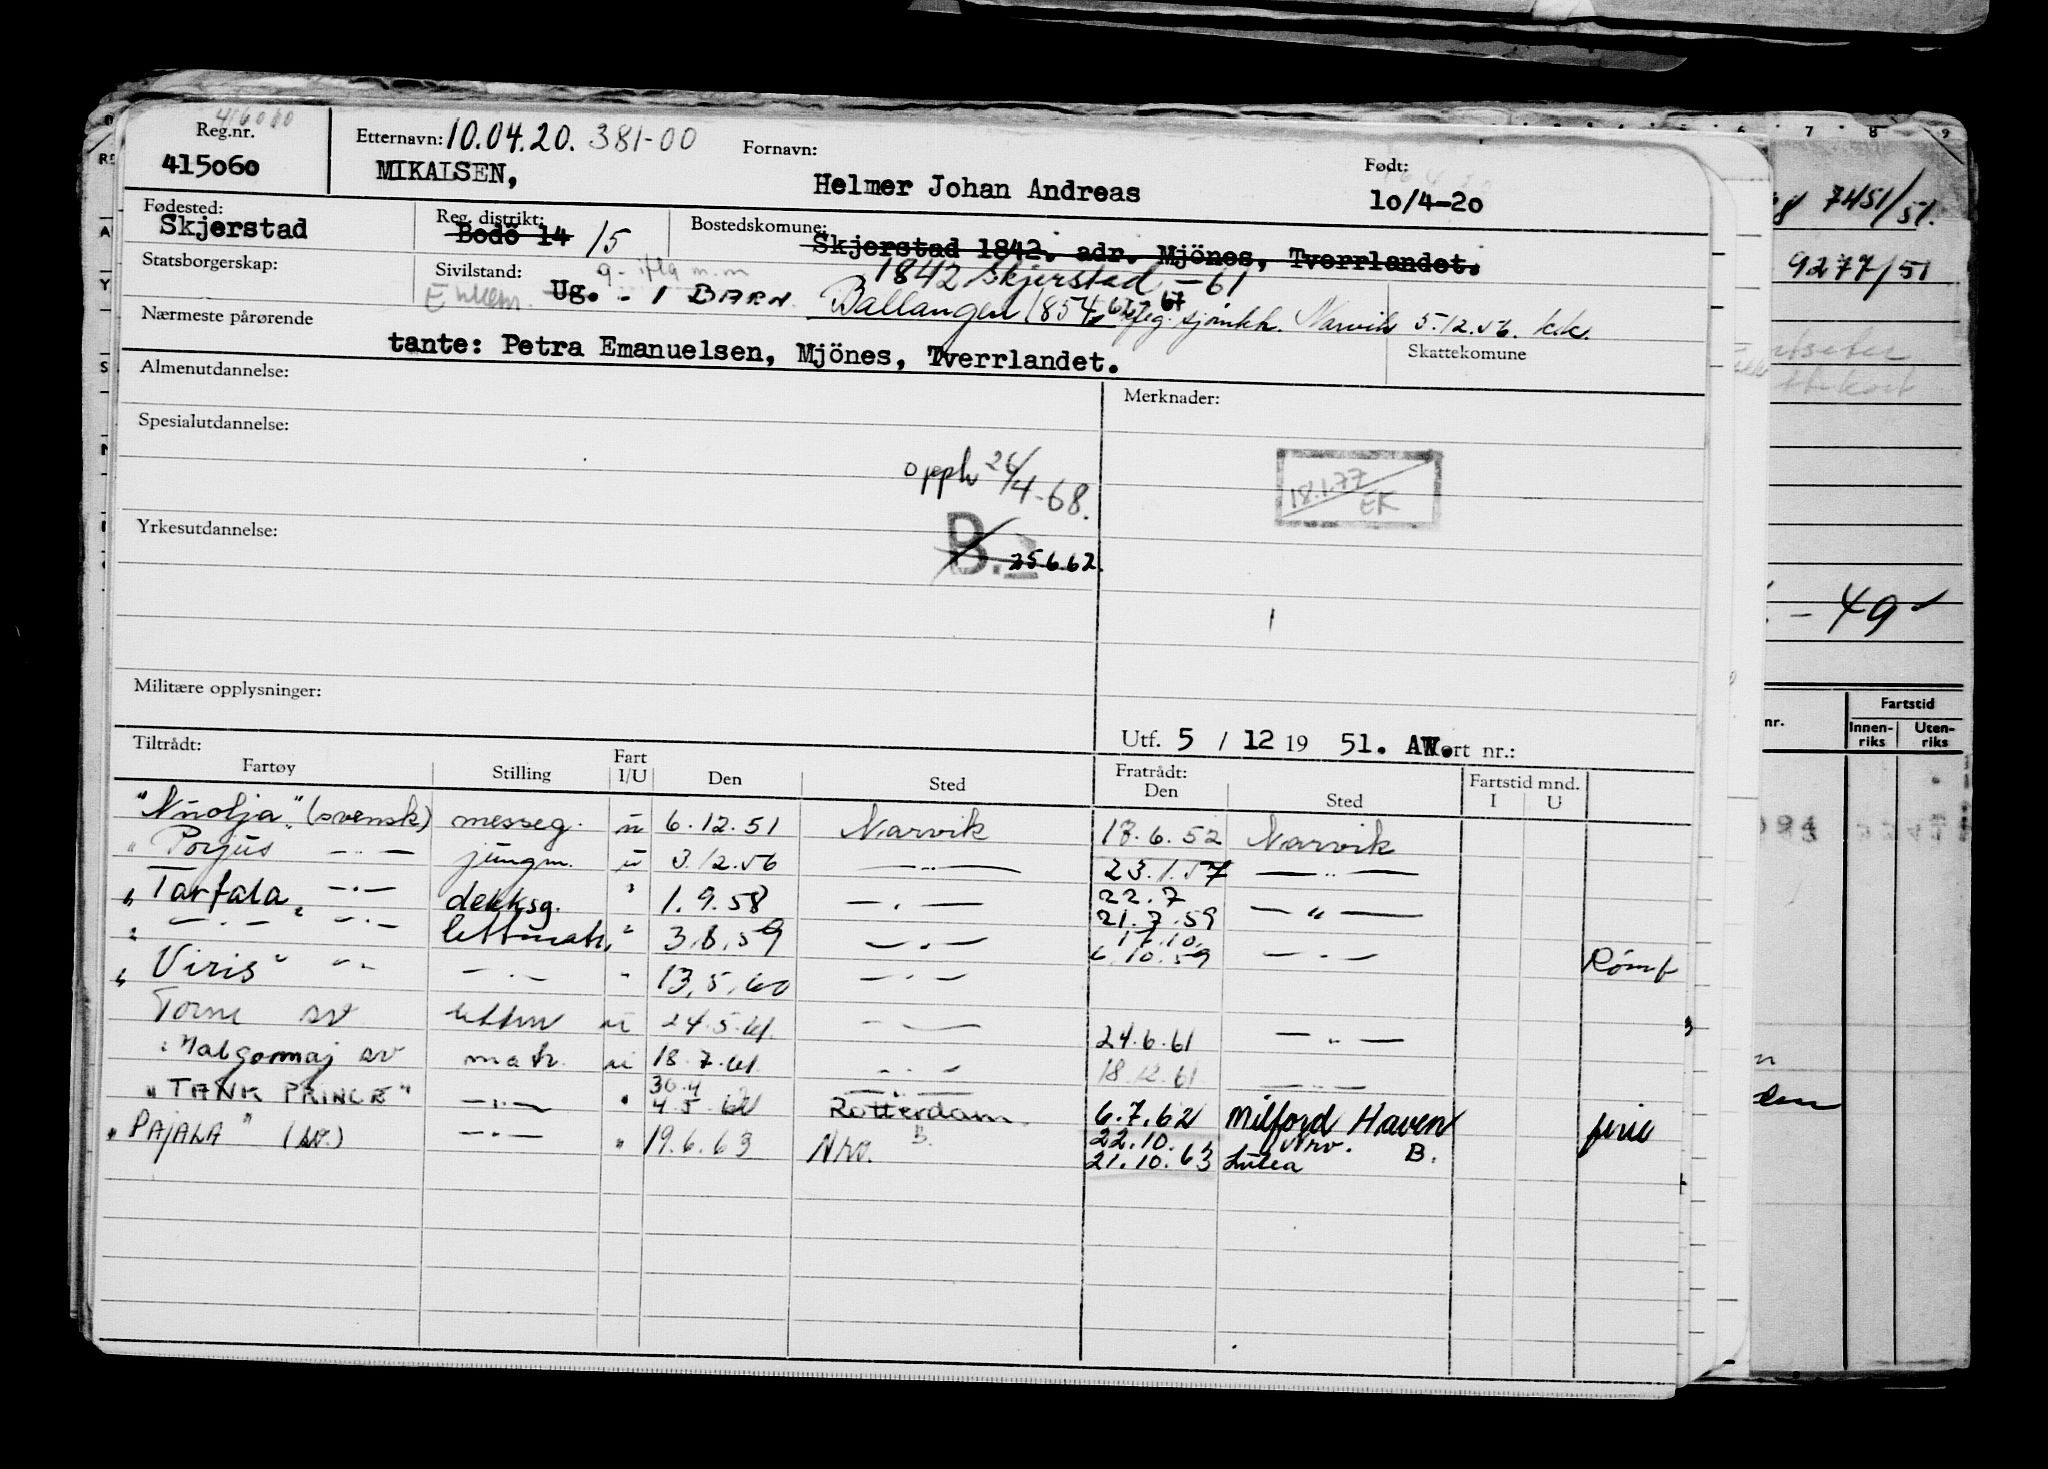 Reg.nr. Etternavn: 10.04.20. 381-00 Fornavn: Født:
415060 MIKALSEN, Helmer Johan Andreas 10/4-20
Fødested: Reg. distrikt: Bostedskomune:
Skjerstad Bodö 14 15 Skjerstad 1842. adr. Mjönes, Tverrlandet.
Statsborgerskap: Sivilstand: 1842 Skjerstad - 61
Ug. - 1 BARN Ballangen 1854 sjömkk. Narvik 5.12.56. k.k.
Nærmeste pårørende Skattekomune
tante: Petra Emanuelsen, Mjönes, Tverrlandet.
Almenutdannelse: Merknader:
Spesialutdannelse:
opph 26/4-68.
18.1.77 EK
Yrkesutdannelse: B.2 25.6.62.
Militære opplysninger:
Utf. 5 / 12 19 51. AW. Kort nr.:
Tiltrådt: Fratrådt: Fartstid mnd.
Fartøy Stilling Fart I/U Den Sted Den Sted I U
"Nuolja" (svensk) messeg. u 6.12.51 Narvik 17.6.52 Narvik
" Porjus — " — jungm. u 3.12.56 — " — 23.1.57 — " —
" Tarfala " — " — dekksg. " 1.9.58 — " — 22.7 21.7.59 — " —
" — " — — " — lettmatr. " 3.8.59 — " — 17.10. 6.10.59 — " — Rømt
" Viris " — " — — " — " 13.5.60 — " —
Torne sv lettm u 24.5.61. — " — 24.6.61 — " —
"Malgomaj sv matr. u 18.7.61. — " — 18.12.61 — " —
"TANK PRINCE" — " — " 30.4 4.5.62 Rotterdam 6.7.62 Milford Haven
" PAJALA " (sv.) — " — " 19.6.63 Nrv. B. 22.10. 21.10.63 Nrv. Lulea B.
7 8 9
7451/51.
9277/51
- 49
nr. Fartstid
Innen-riks Uten-riks